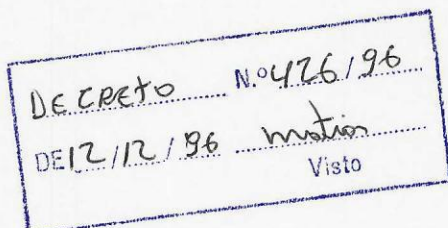 DECRETO N.º 426/96
DE 12/12/96
Visto